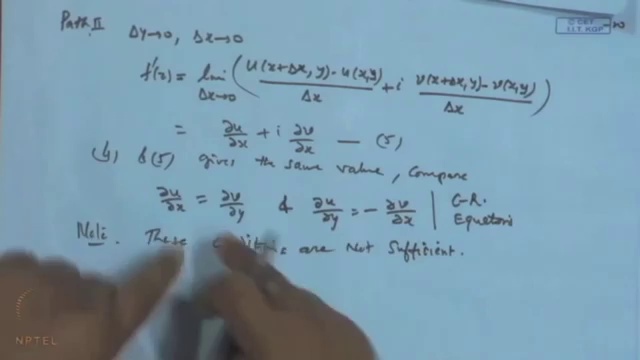 Path II Δy→0, Δx→0
© CET
I.I.T. KGP
f'(z) = lim Δx→0 ( u(x+Δx, y) - u(x,y) / Δx + i v(x+Δx,y) - v(x,y) / Δx )
= ∂u/∂x + i ∂v/∂x — (5)
(4) & (5) gives the same value, compare
∂u/∂x = ∂v/∂y & ∂u/∂y = - ∂v/∂x | C-R. Equations
Note. These are Not Sufficient.
NPTEL